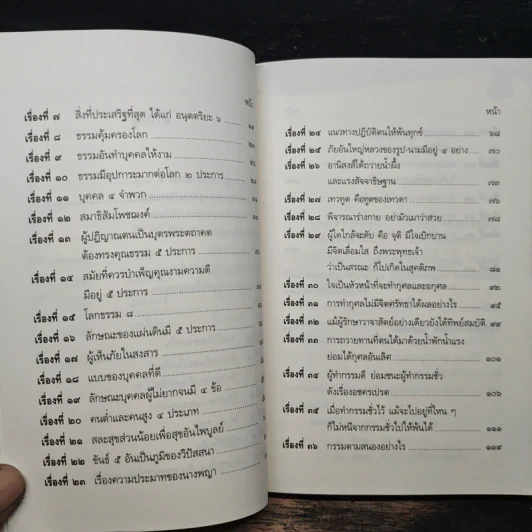 หน้า
เรื่องที่ ๗ สิ่งที่ประเสริฐที่สุด ได้แก่ อนุตตริยะ ๖
เรื่องที่ ๘ ธรรมคุ้มครองโลก
เรื่องที่ ๙ ธรรมอันทำบุคคลให้งาม
เรื่องที่ ๑๐ ธรรมมีอุปการะมากต่อโลก ๒ ประการ
เรื่องที่ ๑๑ บุคคล ๔ จำพวก
เรื่องที่ ๑๒ สมาธิสัมโพชฌงค์
เรื่องที่ ๑๓ ผู้ปฏิญาณตนเป็นบุตรพระตถาคต
ต้องทรงคุณธรรม ๕ ประการ
เรื่องที่ ๑๔ สมัยที่ควรบำเพ็ญคุณงามความดี
มีอยู่ ๕ ประการ
เรื่องที่ ๑๕ โลกธรรม ๘
เรื่องที่ ๑๖ ลักษณะของแผ่นดินมี ๕ ประการ
เรื่องที่ ๑๗ ผู้เห็นภัยในสงสาร
เรื่องที่ ๑๘ แบบของบุคคลที่ดี
เรื่องที่ ๑๙ ลักษณะบุคคลผู้ไม่ยากจนมี ๔ ข้อ
เรื่องที่ ๒๐ คนต่ำและคนสูง ๔ ประเภท
เรื่องที่ ๒๑ สละสุขส่วนน้อยเพื่อสุขอันไพบูลย์
เรื่องที่ ๒๒ ขันธ์ ๕ อันเป็นภูมิของวิปัสสนา
เรื่องที่ ๒๓ เรื่องความประมาทของนางพญา
หน้า
เรื่องที่ ๒๔ แนวทางปฏิบัติตนให้พ้นทุกข์ ๖๘
เรื่องที่ ๒๕ ภัยอันใหญ่หลวงของรูป-นามมีอยู่ ๔ อย่าง ๗๐
เรื่องที่ ๒๖ อานิสงส์ได้ถวายน้ำผึ้ง
และแรงสัจจาธิษฐาน ๗๓
เรื่องที่ ๒๗ เทวทูต คือทูตของเทวดา ๗๖
เรื่องที่ ๒๘ พิจารณาร่างกาย อย่ามัวเมาว่าสวย ๗๘
เรื่องที่ ๒๙ ผู้ใดใกล้จะดับ คือ จุติ มีใจเบิกบาน
มีจิตเลื่อมใส ถึงพระพุทธเจ้า
ว่าเป็นสรณะ ก็ไปเกิดในสุคติภพ
เรื่องที่ ๓๐ ใจเป็นหัวหน้าที่จะทำกุศลและอกุศล ๙๒
เรื่องที่ ๓๑ การทำกุศลไม่มีจิตศรัทธาได้ผลอย่างไร ๙๕
เรื่องที่ ๓๒ แม้ผู้รักษาวาจาสัตย์อย่างเดียวยังได้ทิพย์สมบัติ ๙๙
เรื่องที่ ๓๓ การถวายทานที่ตนได้มาด้วยน้ำพักน้ำแรง
ย่อมได้กุศลอันเลิศ ๑๐๑
เรื่องที่ ๓๔ ผู้ทำกรรมดี ย่อมชนะผู้ทำกรรมชั่ว
ดังเรื่องอชครเปรต ๑๐๖
เรื่องที่ ๓๕ เมื่อทำกรรมชั่วไว้ แม้จะไปอยู่ที่ไหน ๆ
ก็ไม่หนีจากกรรมชั่วไปให้พ้นได้ ๑๑๑
เรื่องที่ ๓๖ กรรมตามสนองอย่างไร ๑๑๙